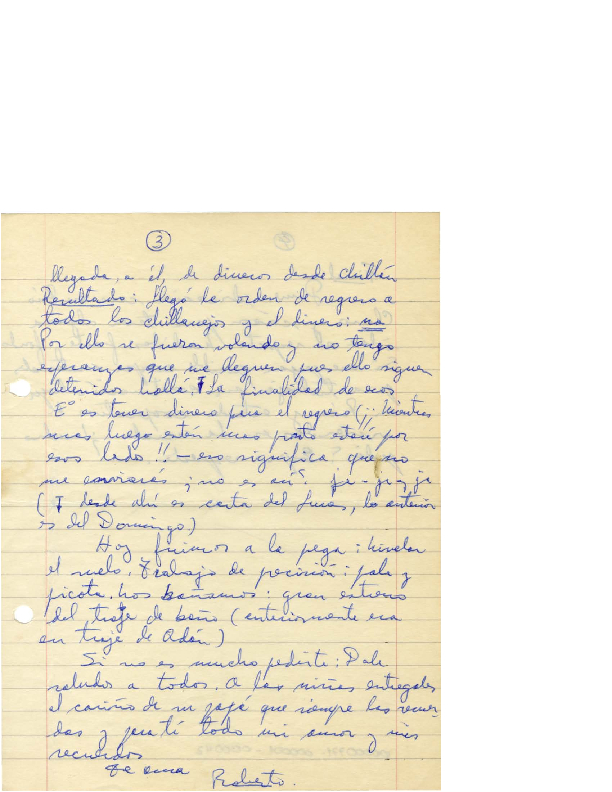 3
llegada, a él, de dineros desde Chillán
Resultado: Llegó la orden de regreso a
todos los chillanejos y el dinero: no
Por ello se fueron volando y no tengo
esperanzas que me lleguen pues ello siguen
detenidos hallá. La finalidad de esos
E° es tener dinero para el regreso (¡¡ Mientras
mas luego estén mas pronto estaré por
esos lados!! – eso significa que no
me enviarás ¿no es así? ja-ja-ja
( desde ahí es carta del Lunes, lo anterior
es del Domingo)
Hoy fuimos a la pega: nivelar
el suelo. Trabajo de precisión: pala y
picota. Nos bañamos: gran estreno
del traje de baño (anteriormente era
en traje de Adán)
Si no es mucho pedirte: Dale
saludos a todos. A las niñas entregales
el cariño de su papá que siempre las recuer-
das y para tí todo mi amor y mis
recuerdos
Te ama
Roberto.